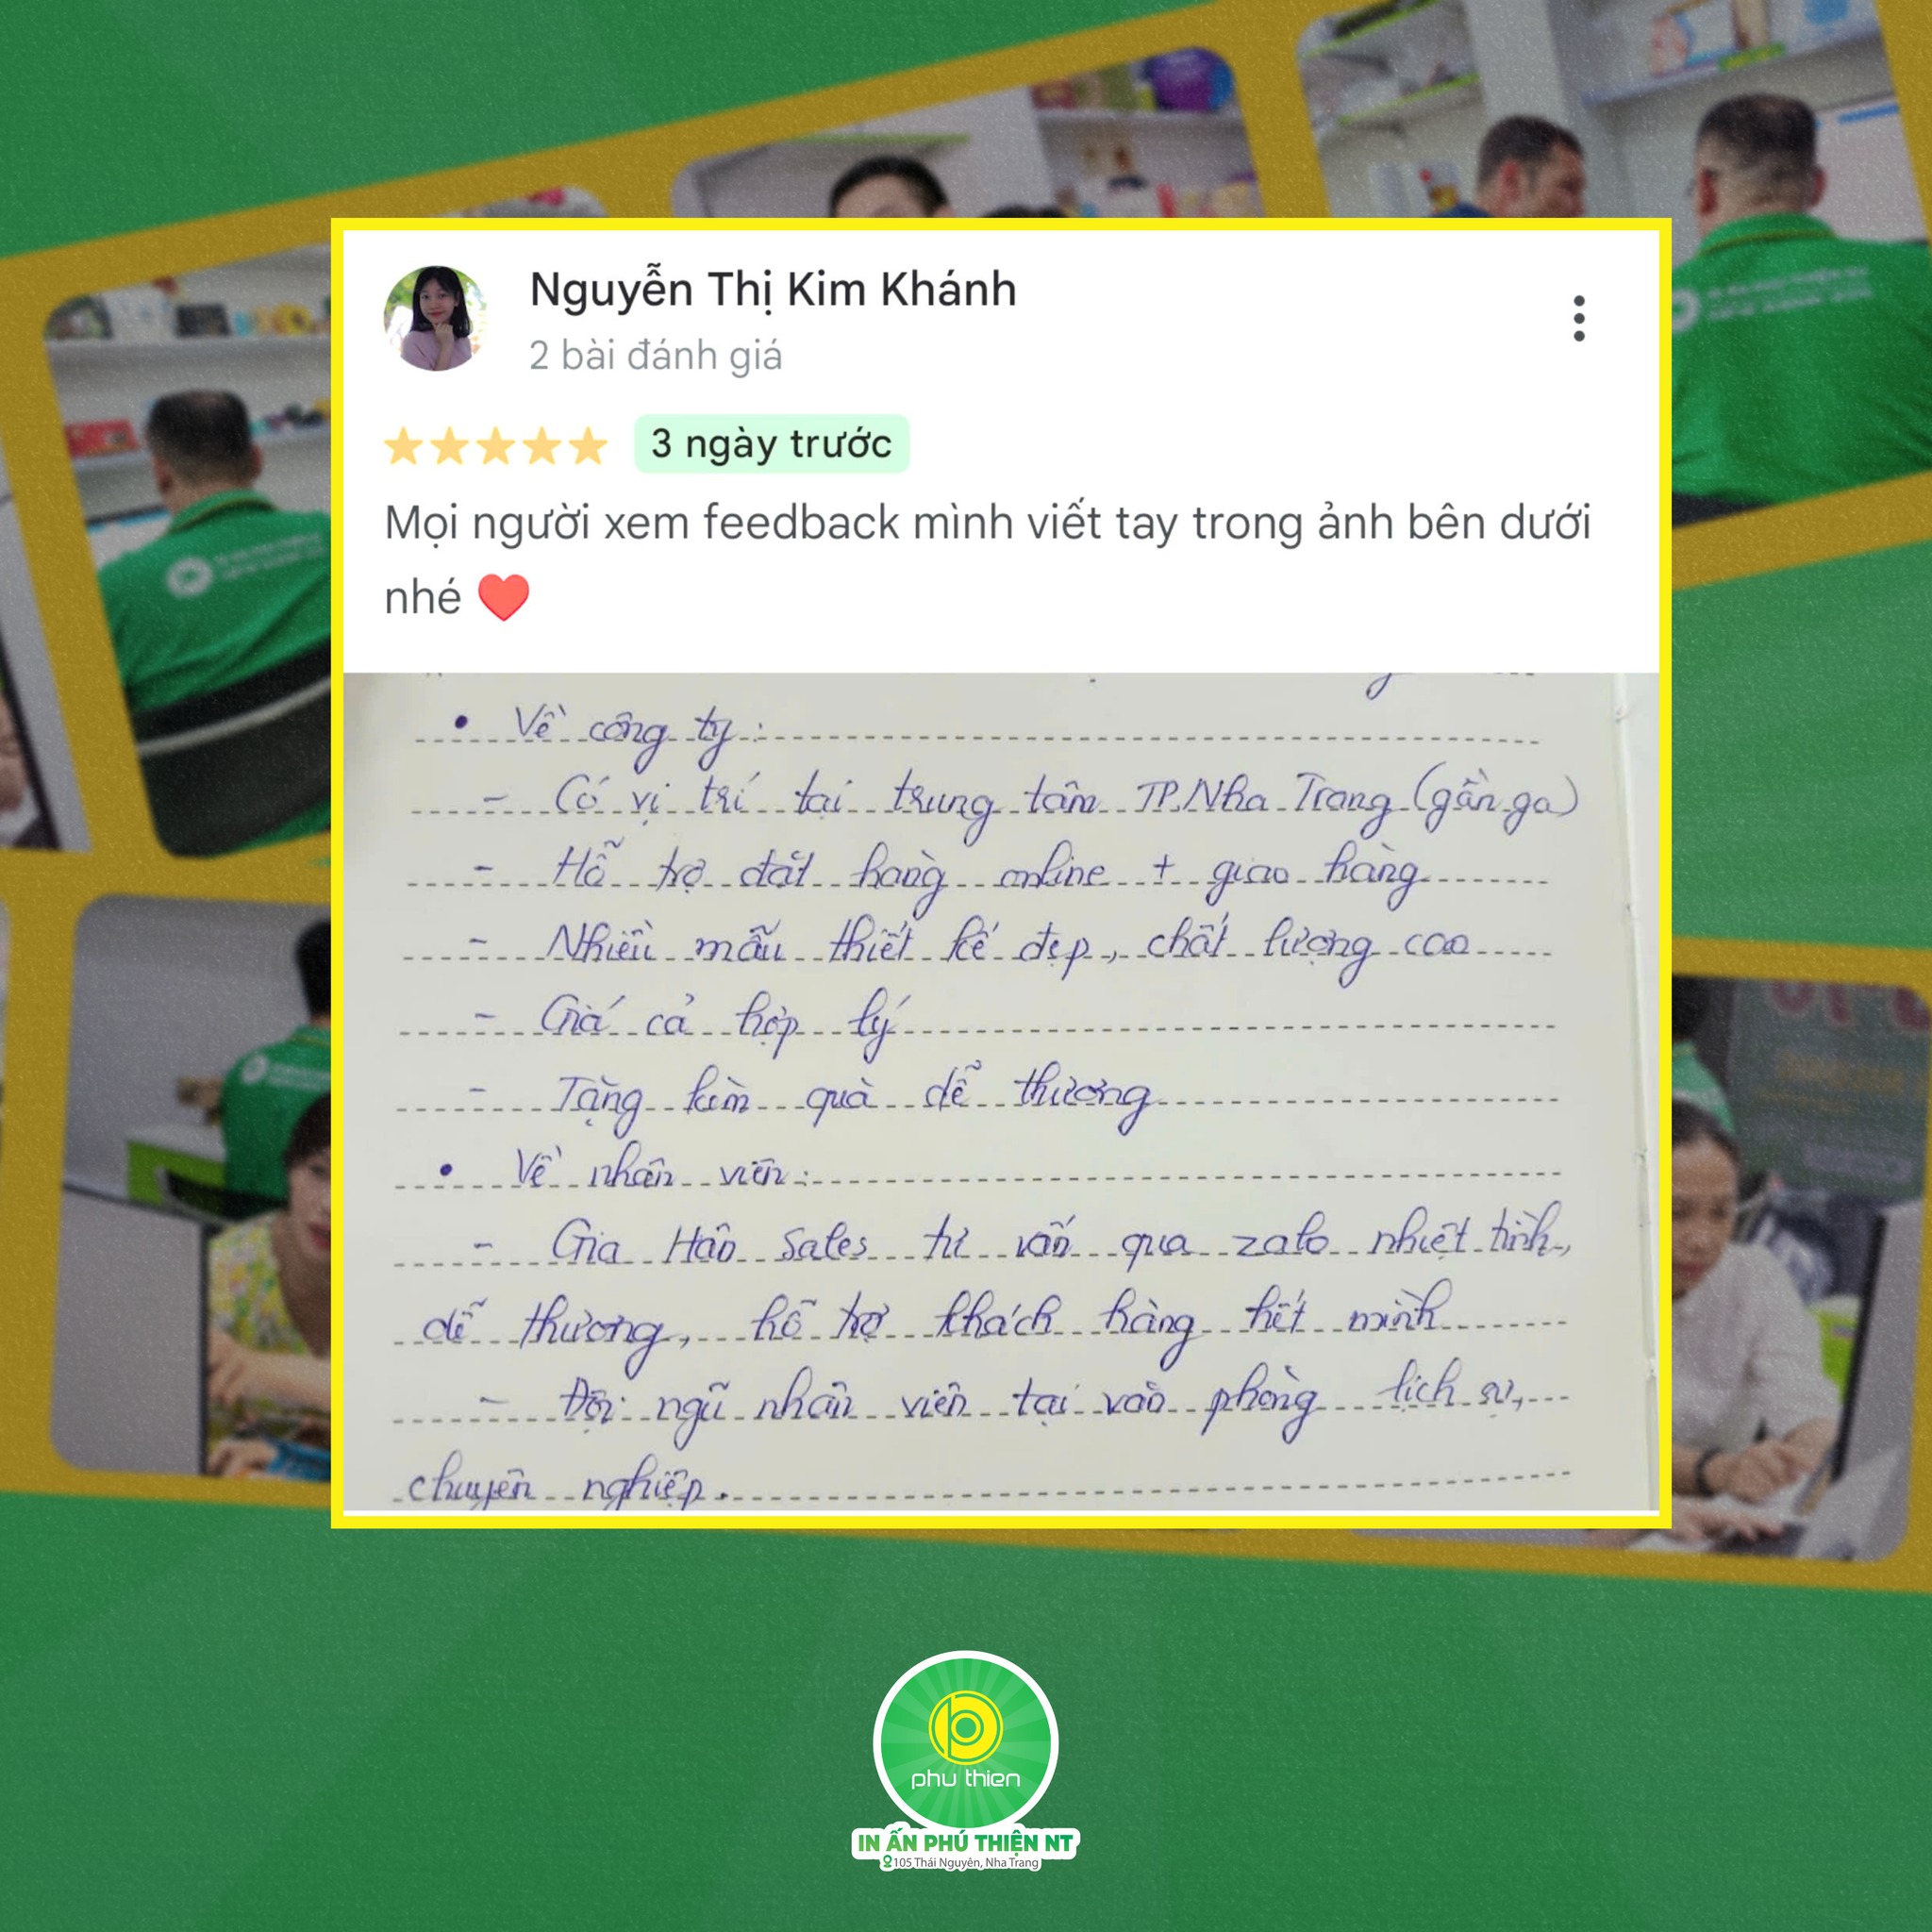 Nguyễn Thị Kim Khánh
2 bài đánh giá
3 ngày trước
Mọi người xem feedback mình viết tay trong ảnh bên dưới
nhé ❤
• Về công ty:
- Có vị trí tại trung tâm TP.Nha Trang (gần ga)
- Hỗ trợ đặt hàng online + giao hàng
- Nhiều mẫu thiết kế đẹp, chất lượng cao
- Giá cả hợp lý
- Tặng kèm quà dễ thương
• Về nhân viên:
- Gia Hân Sales tư vấn qua zalo nhiệt tình,
dễ thương, hỗ trợ khách hàng hết mình
- Đội ngũ nhân viên tại văn phòng lịch sự,
chuyên nghiệp.
phu thien
IN ẤN PHÚ THIỆN NT
105 Thái Nguyên, Nha Trang